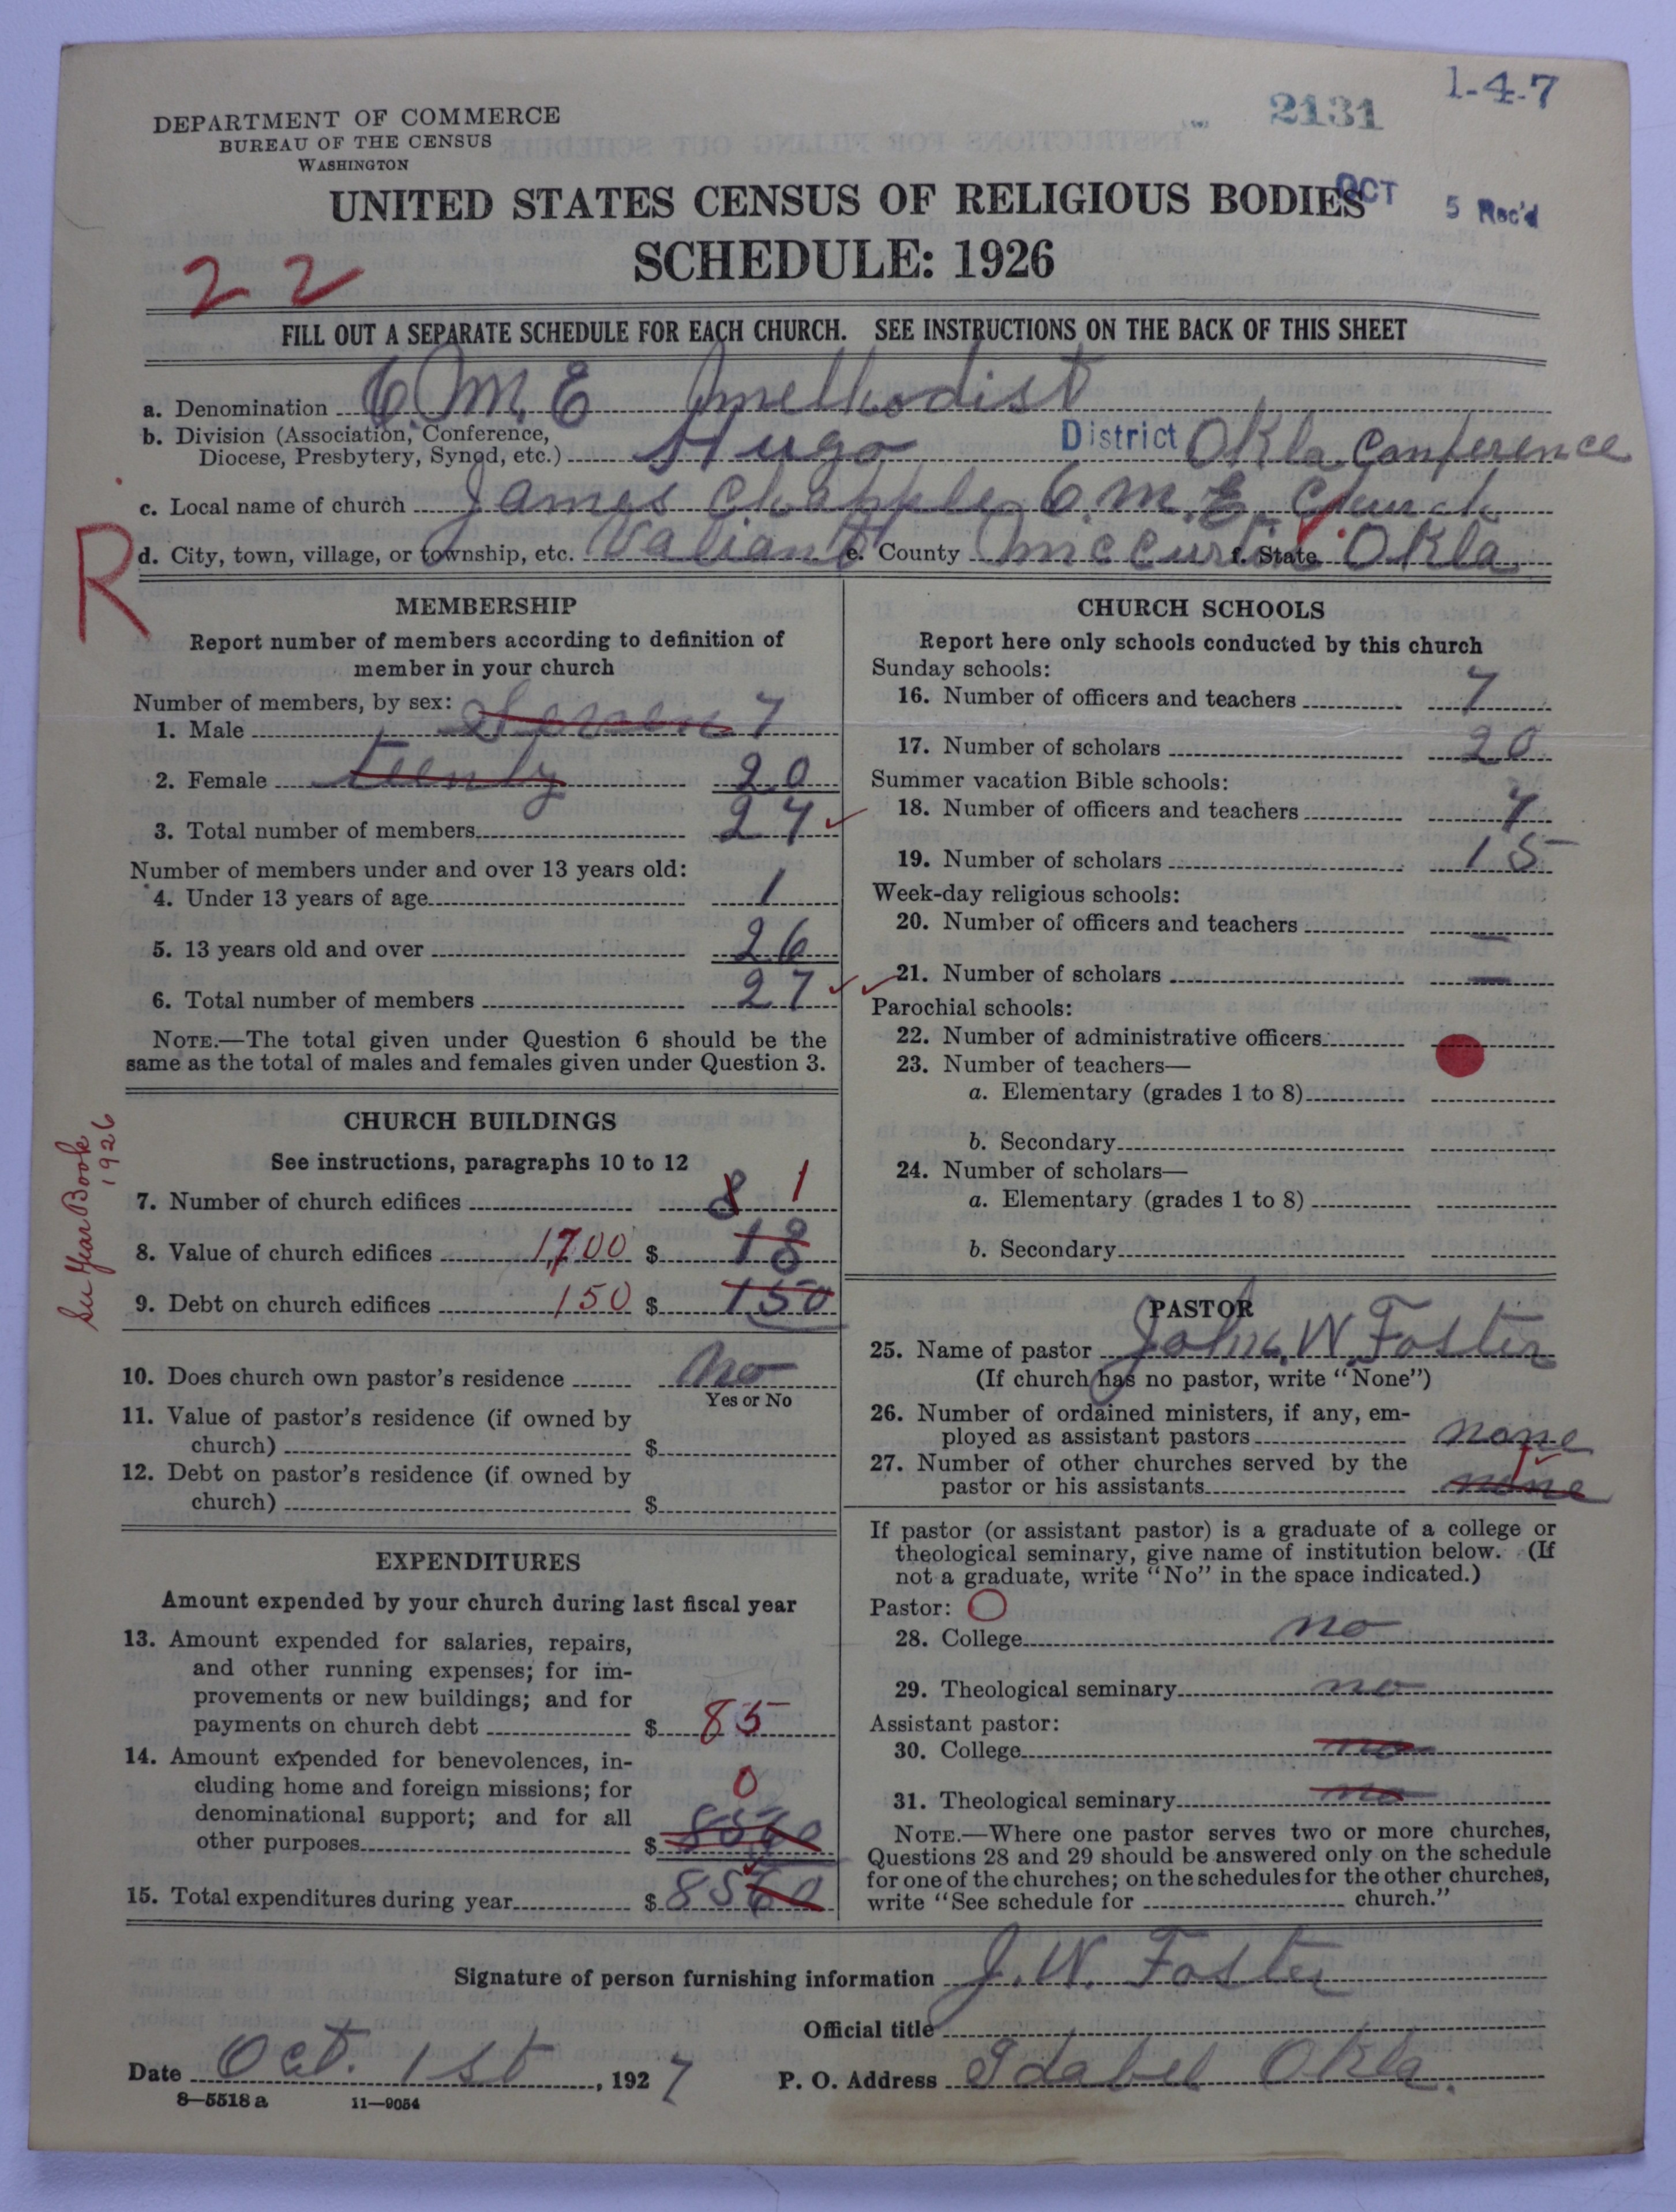 1-4-7
2131
DEPARTMENT OF COMMERCE
BUREAU OF THE CENSUS
WASHINGTON
UNITED STATES CENSUS OF RELIGIOUS BODIES
OCT 5 Rec'd
SCHEDULE: 1926
22
FILL OUT A SEPARATE SCHEDULE FOR EACH CHURCH. SEE INSTRUCTIONS ON THE BACK OF THIS SHEET
a. Denomination C.M.E Methodist
b. Division (Association, Conference,
Diocese, Presbytery, Synod, etc.) Hugo District Okla Conference
c. Local name of church James Chapple C.M.E. Church
R
d. City, town, village, or township, etc. Valiant e. County McCurtin f. State Okla
MEMBERSHIP
Report number of members according to definition of
member in your church
Number of members, by sex:
1. Male Seven 7
2. Female teenty 20
3. Total number of members 27
Number of members under and over 13 years old:
4. Under 13 years of age 1
5. 13 years old and over 26
6. Total number of members 27
NOTE.—The total given under Question 6 should be the
same as the total of males and females given under Question 3.
CHURCH BUILDINGS
See instructions, paragraphs 10 to 12
See Year Book
1926
7. Number of church edifices 8 1
8. Value of church edifices 1700 $ 18
9. Debt on church edifices 150 $ 150
10. Does church own pastor's residence No
Yes or No
11. Value of pastor's residence (if owned by
church) $
12. Debt on pastor's residence (if owned by
church) $
EXPENDITURES
Amount expended by your church during last fiscal year
13. Amount expended for salaries, repairs,
and other running expenses; for im-
provements or new buildings; and for
payments on church debt $ 85
14. Amount expended for benevolences, in-
cluding home and foreign missions; for
denominational support; and for all
other purposes $ 0 8560
15. Total expenditures during year $ 8560
CHURCH SCHOOLS
Report here only schools conducted by this church
Sunday schools:
16. Number of officers and teachers 7
17. Number of scholars 20
Summer vacation Bible schools:
18. Number of officers and teachers 7
19. Number of scholars 15
Week-day religious schools:
20. Number of officers and teachers —
21. Number of scholars —
Parochial schools:
22. Number of administrative officers
23. Number of teachers—
a. Elementary (grades 1 to 8)
b. Secondary
24. Number of scholars—
a. Elementary (grades 1 to 8)
b. Secondary
PASTOR
25. Name of pastor John W. Foster
(If church has no pastor, write "None")
26. Number of ordained ministers, if any, em-
ployed as assistant pastors none
27. Number of other churches served by the
pastor or his assistants none 1
If pastor (or assistant pastor) is a graduate of a college or
theological seminary, give name of institution below. (If
not a graduate, write "No" in the space indicated.)
Pastor:
28. College no
29. Theological seminary no
Assistant pastor:
30. College no
31. Theological seminary no
NOTE.—Where one pastor serves two or more churches,
Questions 28 and 29 should be answered only on the schedule
for one of the churches; on the schedules for the other churches,
write "See schedule for church."
Signature of person furnishing information J. W. Foster
Official title
Date Oct. 1st, 1927 P. O. Address Idabel Okla.
8—5518 a 11—9054